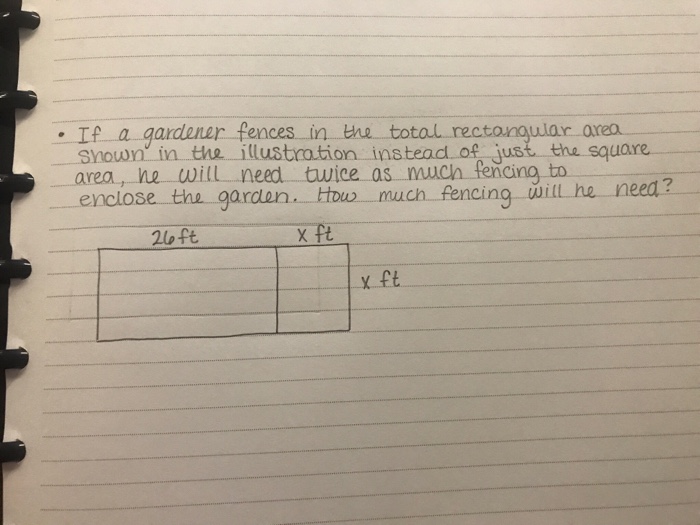 • If a gardener fences in the total rectangular area
shown in the illustration instead of just the square
area, he will need twice as much fencing to
enclose the garden. How much fencing will he need?
26ft x ft
x ft